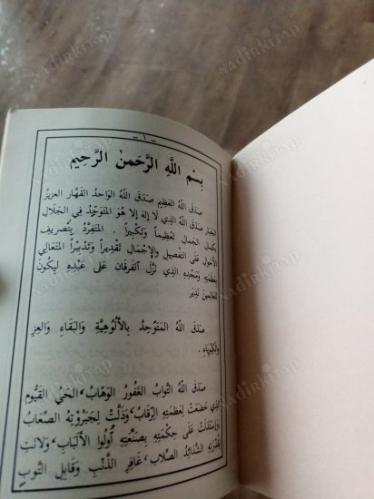 - ١ -
بِسْمِ اللَّهِ الرَّحْمنِ الرَّحِيمِ
صَدَقَ اللهُ الْعَظِيمُ صَدَقَ اللهُ الْوَاحِدُ الْقَهَّارُ الْعَزِيزُ
الْجَبَّارُ صَدَقَ اللهُ الَّذِي لَا إِلهَ إِلَّا هُوَ الْمُتَوَحِّدُ فِي الْجَلَالِ
بِكَمَالِ الْجَمَالِ تَعْظِيماً وَتَكْبِيراً . الْمُتَفَرِّدُ بِتَصْرِيفِ
الْأَحْوَالِ عَلَى التَّفْصِيلِ وَالْإِجْمَالِ تَقْدِيراً وَتَدْبِيراً الْمُتَعَالِي
بِعَظَمَتِهِ وَمَجْدِهِ الَّذِي نَزَّلَ الْفُرْقَانَ عَلَى عَبْدِهِ لِيَكُونَ
لِلْعَالَمِينَ نَذِير
صَدَقَ اللهُ الْمُتَوَحِّدُ بِالْأُلُوهِيَّةِ وَالْبَقَاءِ وَالْعِزِ
وَالْكِبْرِيَاءِ .
صَدَقَ اللهُ التَّوَّابُ الْغَفُورُ الْوَهَّابُ، الْحَيُّ الْقَيُّومُ
الَّذِي خَضَعَتْ لِعَظَمَتِهِ الرِّقَابُ، وَذَلَّتْ لِجَبَرُوتِهِ الصِّعَابُ
وَاسْتَدَلَّتْ عَلَى حِكْمَتِهِ بِصَنْعَتِهِ أُولُوا الْأَلْبَابِ، وَلَانَتْ
لِقُدْرَتِهِ الشَّدَائِدُ الصِّلَابُ، غَافِرِ الذَّنْبِ وَقَابِلِ التَّوْبِ
nadirkitap